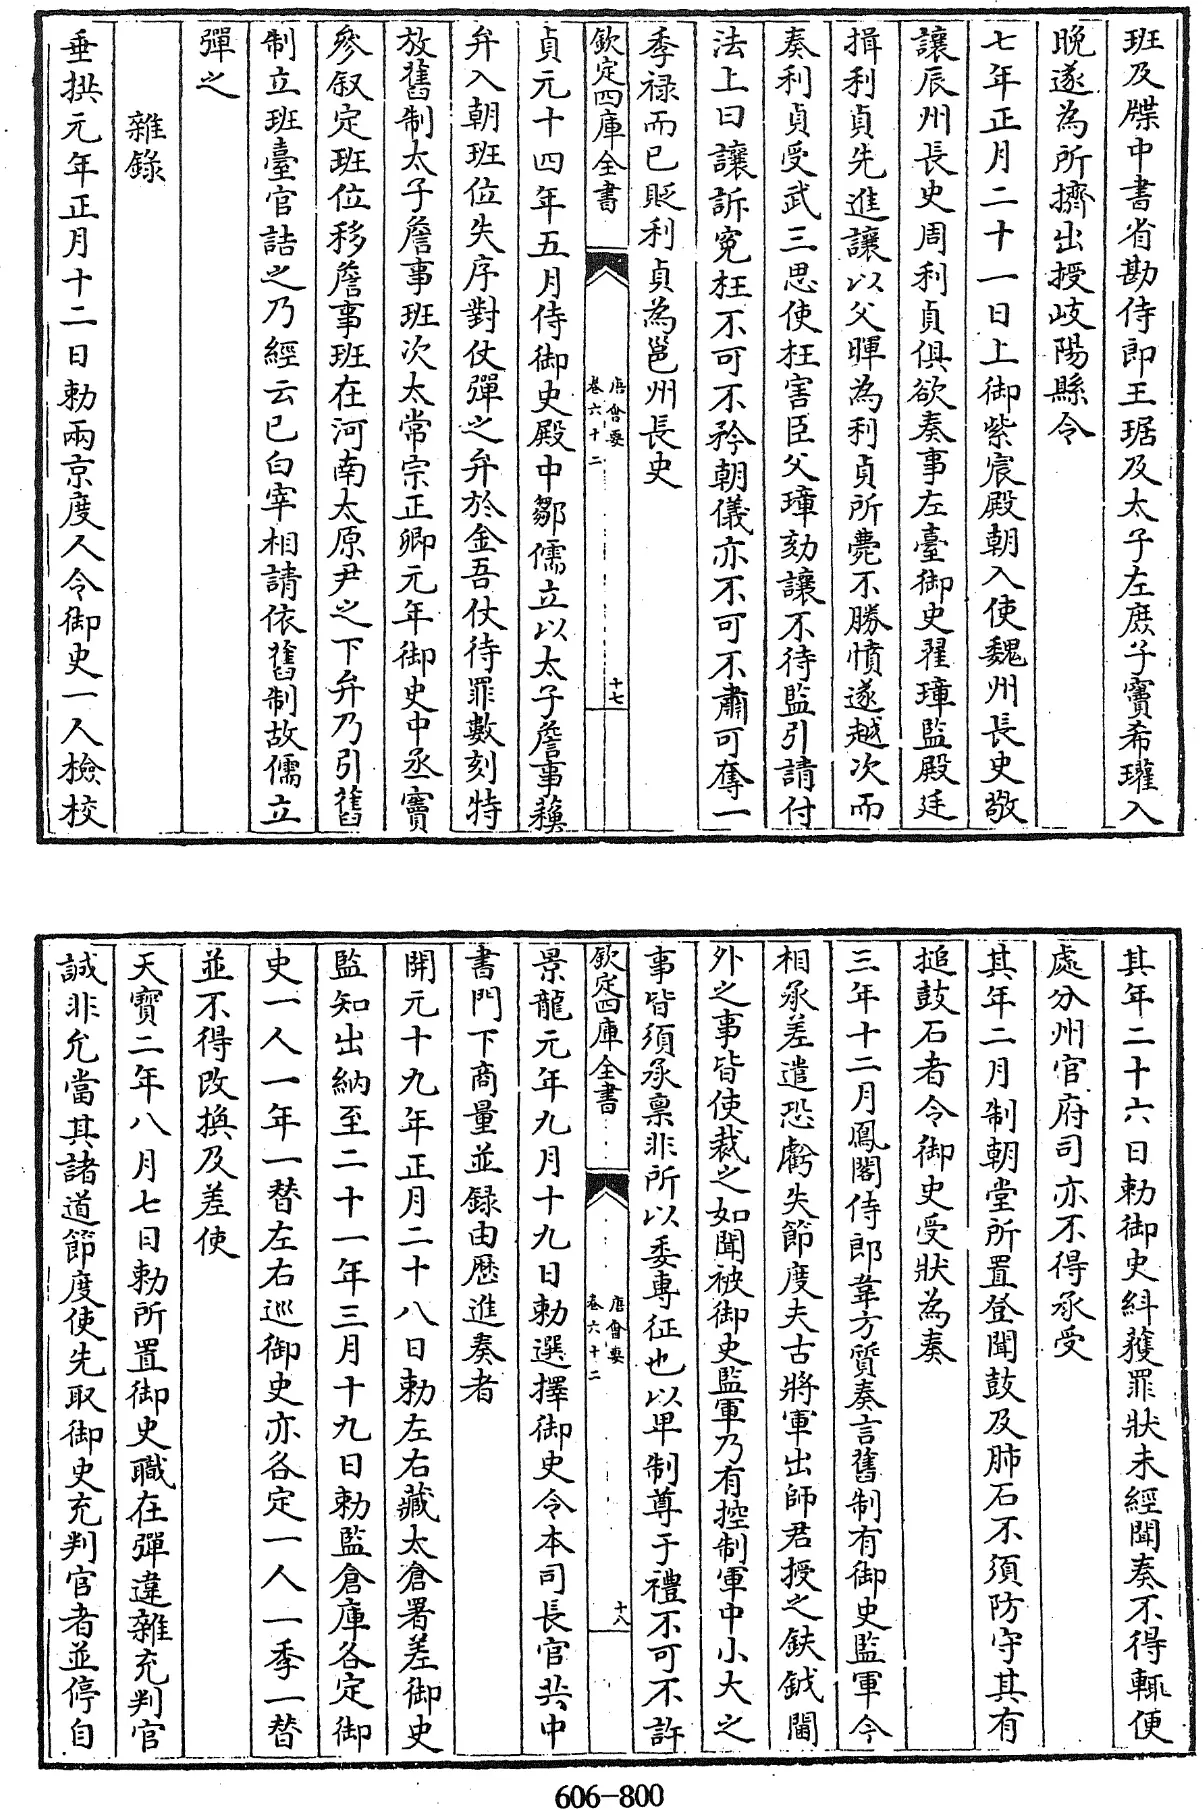 班及牒中書省勘侍郎王琚及太子左庶子竇希瓘入
晚遂為所擠出授岐陽縣令
七年正月二十一日上御紫宸殿朝入使魏州長史敬
讓辰州長史周利貞俱欲奏事左臺御史翟璋監殿廷
揖利貞先進讓以父暉為利貞所斃不勝憤遂越次而
奏利貞受武三思使枉害臣父璋劾讓不待監引請付
法上曰讓訴寃枉不可不矜朝儀亦不可不肅可奪一
季禄而已貶利貞為邕州長史
欽定四庫全書
唐會要
卷六十二
十七
貞元十四年五月侍御史殿中鄒儒立以太子詹事蘇
弁入朝班位失序對仗彈之弁於金吾仗待罪數刻特
放舊制太子詹事班次太常宗正卿元年御史中丞竇
參叙定班位移詹事班在河南太原尹之下弁乃引舊
制立班臺官詰之乃經云已白宰相請依舊制故儒立
彈之
雜錄
垂拱元年正月十二日勅兩京度人令御史一人檢校
其年二十六日勅御史糾獲罪狀未經聞奏不得輒便
處分州官府司亦不得承受
其年二月制朝堂所置登聞鼓及肺石不須防守其有
搥鼓石者令御史受狀為奏
三年十二月鳳閣侍郎韋方質奏言舊制有御史監軍今
相承差遣恐虧失節度夫古將軍出師君授之鈇鉞閫
外之事皆使裁之如聞被御史監軍乃有控制軍中小大之
事皆須承禀非所以委專征也以卑制尊于禮不可不許
欽定四庫全書
唐會要
卷六十二
十八
景龍元年九月十九日勅選擇御史令本司長官共中
書門下商量並録由歷進奏者
開元十九年正月二十八日勅左右藏太倉署差御史
監知出納至二十一年三月十九日勅監倉庫各定御
史一人一年一替左右巡御史亦各定一人一季一替
並不得改換及差使
天寶二年八月七日勅所置御史職在彈違雜充判官
誠非允當其諸道節度使先取御史充判官者並停自
606-800